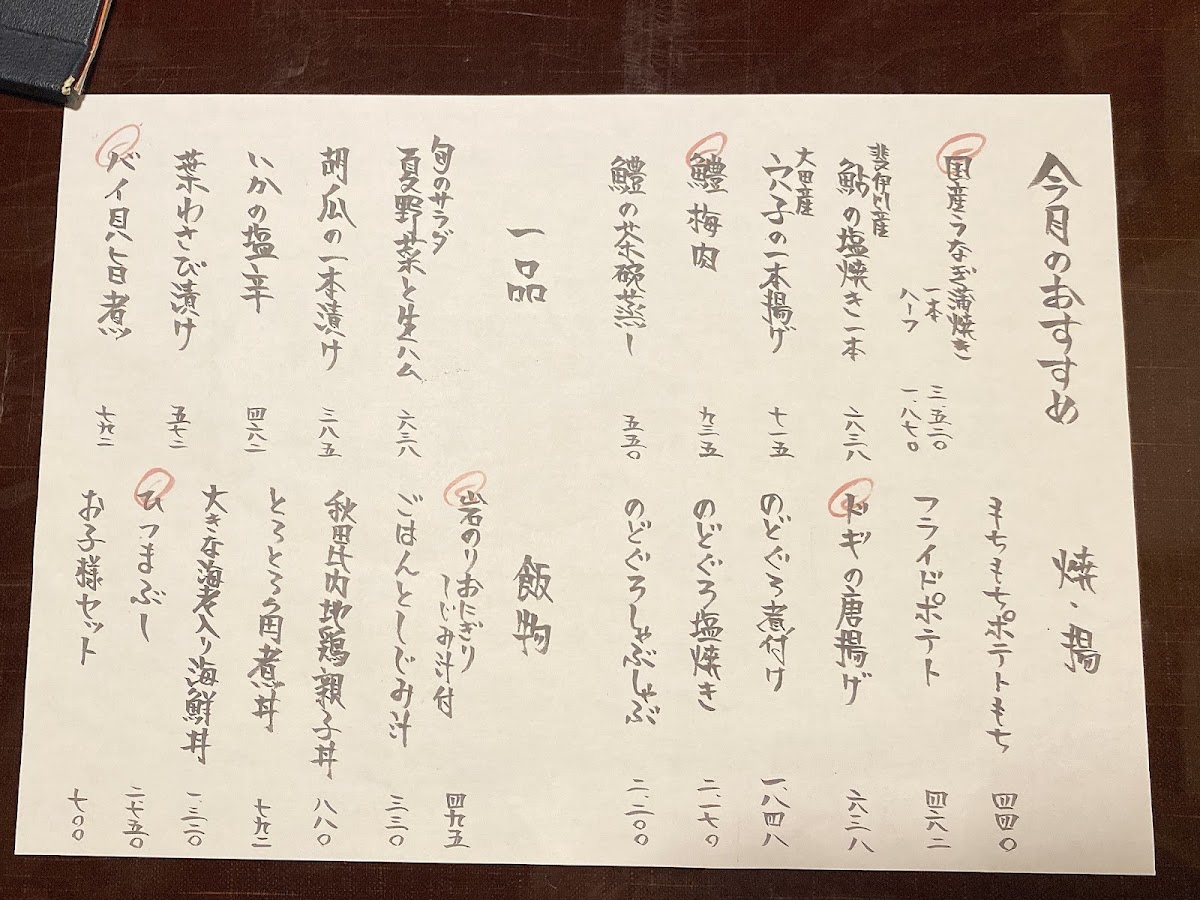 今月のおすすめ
国産うなぎ蒲焼き
一本 三、五二〇
ハーフ 一、八七〇
斐伊川産
鮎の塩焼き一本 六三八
大田産
穴子の一本揚げ 七一五
鱧梅肉 九三五
鱧の茶碗蒸し 五五〇
一品
旬のサラダ
夏野菜と生ハム 六三八
胡瓜の一本漬け 三八五
いかの塩辛 四六二
葉わさび漬け 五七二
バイ貝旨煮 七九二
焼・揚
もちもちポテトもち 四四〇
フライドポテト 四六二
ドギの唐揚げ 六三八
のどぐろ煮付け 一、八四八
のどぐろ塩焼き 二、一七〇
のどぐろしゃぶしゃぶ 二、二〇〇
飯物
岩のりおにぎり
しじみ汁付 四九五
ごはんとしじみ汁 三三〇
秋田比内地鶏親子丼 八八〇
とろとろ角煮丼 七九二
大きな海老入り海鮮丼 一、三二〇
ひつまぶし 二七五〇
お子様セット 七〇〇